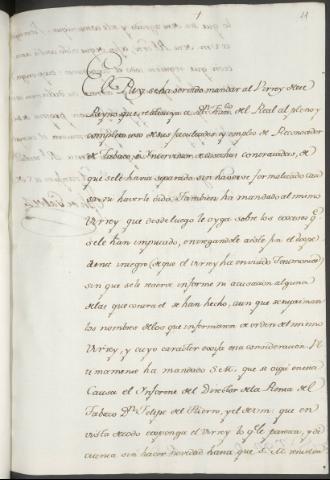 11
El Rey se ha servido mandar al Virrey de ese
Reyno que restituya a Dn. Franco. del Real al pleno y
completo uso de sus facultades y empleo de Reconocedor
de Tabaco, è Interventor de contrahaciendas, de
que se le havia separado sin haverse formalizado causa
ni haverle oido. Tambien ha mandado al mismo
Virrey que desde luego le oyga sobre los excesos qe.
se le han imputado, entregandole a este fin el Expe-
diente integro (de que el Virrey ha enviado Testimonio)
sin que se le reserve informe ni acusacion alguna
de las que contra el se han hecho, aun que se supriman
los nombres de los que informaron de orden del mismo
Virrey, y cuyo caracter exija esta consideracion. Ul-
timamente ha mandado S. M. que se oiga en esta
Causa el Informe del Director de la Renta del
Tabaco Dn. Felipe del Hierro, y el de Vm: que en
vista de todo exponga el Virrey lo qe. le parezca, y dé
cuenta sin hacer novedad hasta que S. M. resuelva